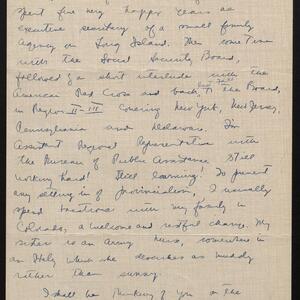 spent five very happy years as
executive secretary of a small family
Agency on Long Island. Then came Time
with the Social Security Board,
followed by a short interlude with the
American Red Cross and back, to the Board,
in Region II-III covering New York, New Jersey,
Pennsylvania and Delaware. I'm
Assistant Regional Representative with
the Bureau of Public Assistance. Still
working hard! Still learning! To prevent
any setting in of provincialism, I usually
spend vacations with my family in
Colorado, a welcome and restful change. My
sister is an Army nurse, somewhere in
in Italy which she describes as muddy
rather than sunny.
I shall be thinking of you on the